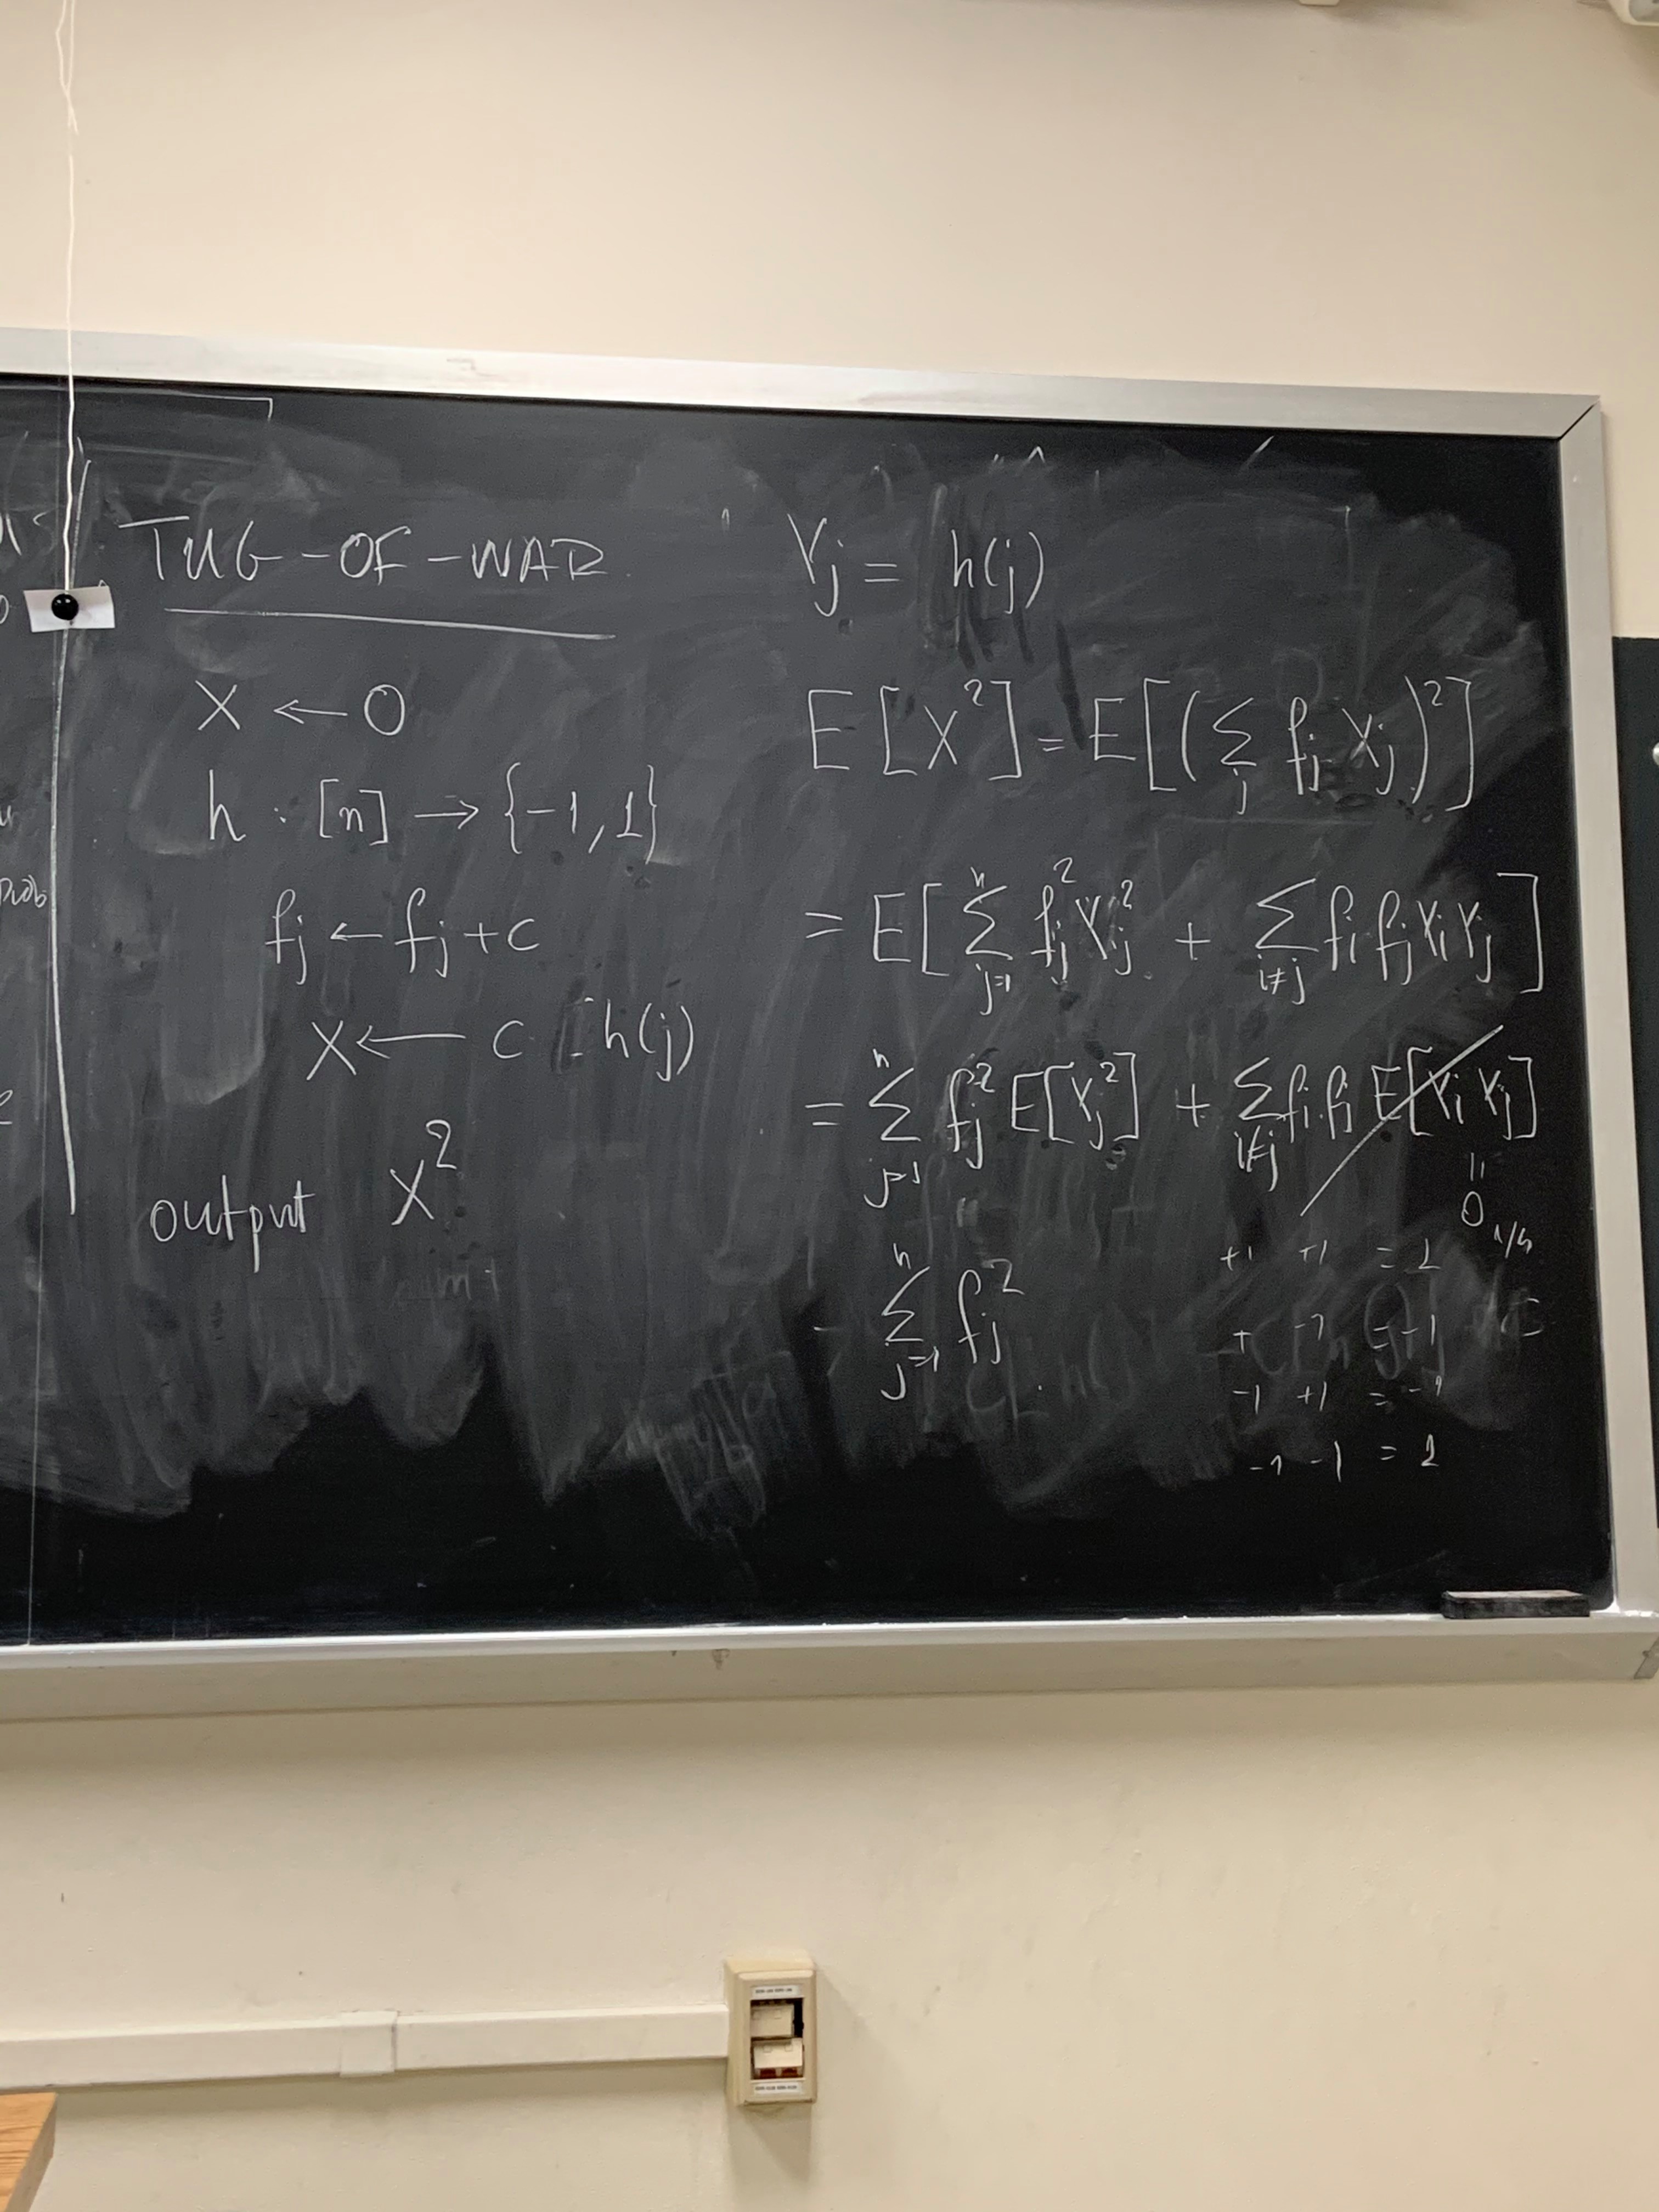 TUG-OF-WAR
X ← 0
h : [n] → {-1, 1}
fj ← fj + c
X ← c · h(j)
output X²
Yj = h(j)
E[X²] = E[(∑j fj Yj)²]
= E[∑j=1^n fj² Yj² + ∑i≠j fi fj Yi Yj]
= ∑j=1^n fj² E[Yj²] + ∑i≠j fi fj E[Yi Yj]
= 0
- ∑j=1^n fj²
+1 +1 = 1 1/4
+ -1 = -1
-1 +1 = -1
-1 -1 = 1